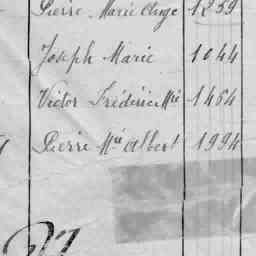 Pierre Marie Ange 1259
Joseph Marie 1044
Victor Frédéric Mie 1454
Pierre Mie Albert 1994